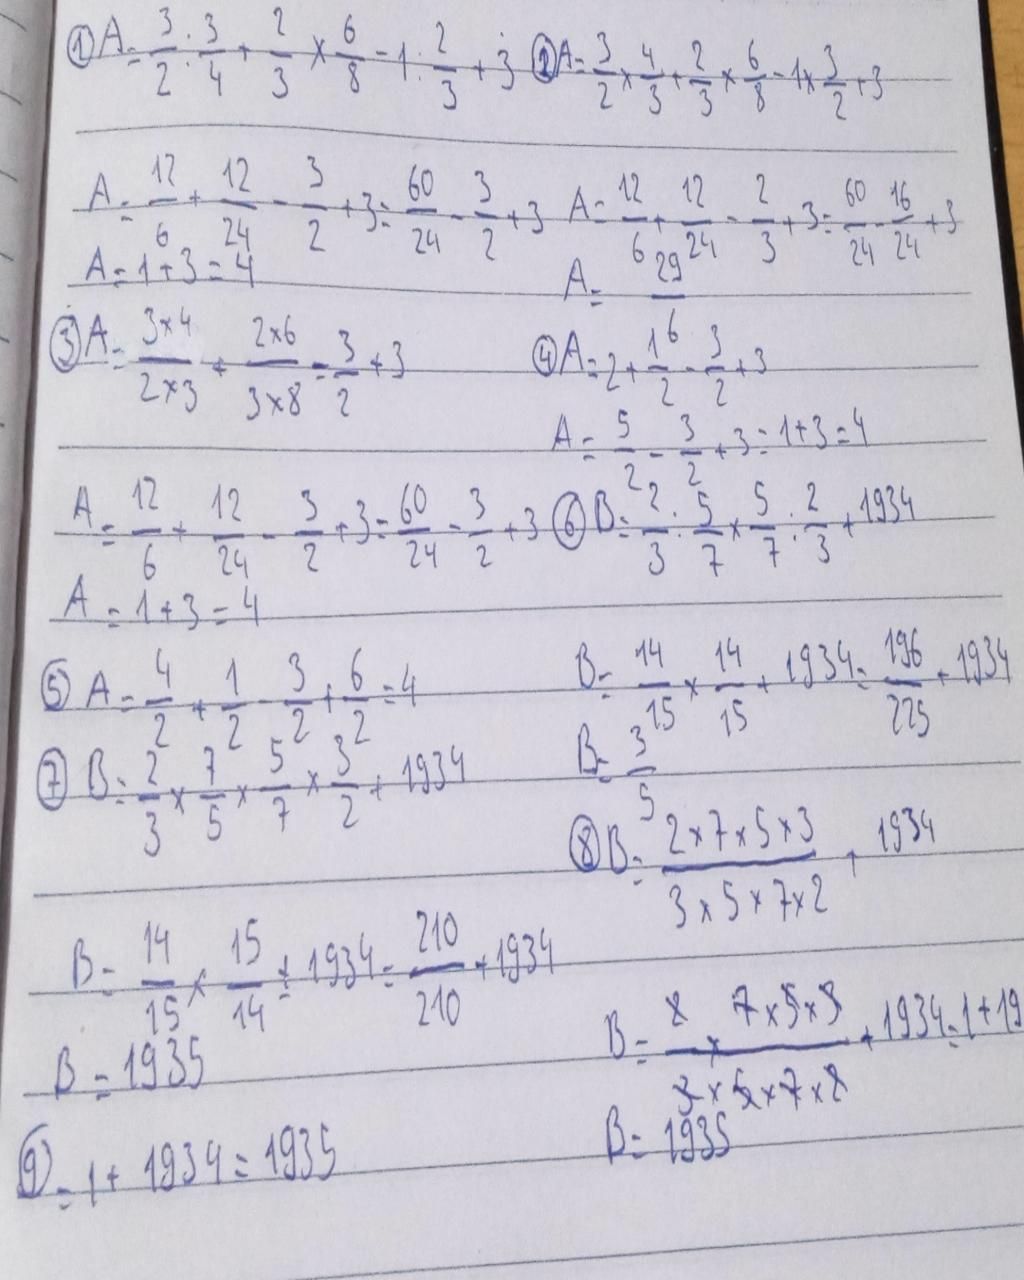 ① A = 3/2 : 3/4 + 2/3 × 6/8 - 1 : 2/3 + 3
② A = 3/2 × 4/3 + 2/3 × 6/8 - 1 × 3/2 + 3
A = 12/6 + 12/24 - 3/2 + 3 = 60/24 - 3/2 + 3
A = 1 + 3 = 4
A = 12/6 + 12/24 - 2/3 + 3 = 60/24 - 16/24 + 3
A = 29/6
③ A = 3×4/2×3 + 2×6/3×8 - 3/2 + 3
④ A = 2 + 1/2 - 3/2 + 3
A = 5/2 - 3/2 + 3 = 1 + 3 = 4
A = 12/6 + 12/24 - 3/2 + 3 = 60/24 - 3/2 + 3
A = 1 + 3 = 4
⑥ B = 2/3 : 5/7 × 5/7 : 2/3 + 1934
⑤ A = 4/2 + 1/2 - 3/2 + 6/2 = 4
B = 14/15 × 14/15 + 1934 = 196/225 + 1934
B = 3/5
⑦ B = 2/3 × 7/5 × 5/7 × 3/2 + 1934
⑧ B = 2×7×5×3/3×5×7×2 + 1934
B = 14/15 × 15/14 + 1934 = 210/210 + 1934
B = 1935
B = 2×7×5×3/3×5×7×2 + 1934 = 1 + 19
B = 1935
⑨ = 1 + 1934 = 1935